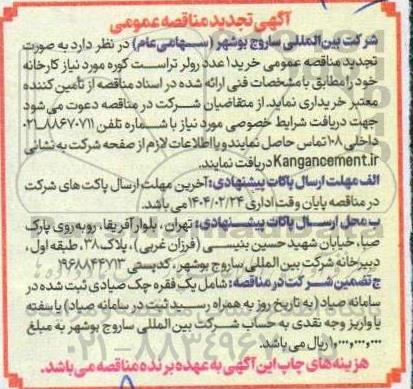 آگهی تجدید مناقصه عمومی
شرکت بین‌المللی ساروج بوشهر (سهامی‌عام) در نظر دارد به صورت
تجدید مناقصه عمومی خرید ۱ عدد رولر تراست کوره مورد نیاز کارخانه
خود را مطابق با مشخصات فنی ارائه شده در اسناد مناقصه از تأمین کننده
معتبر خریداری نماید. از متقاضیان شرکت در مناقصه دعوت می شود
جهت دریافت شرایط خصوصی مورد نیاز با شماره تلفن ۸۸۶۷۰۷۱۱-۰۲۱
داخلی ۱۰۸ تماس حاصل نمایند و یا اطلاعات لازم از صفحه شرکت به نشانی
Kangancement.ir دریافت نمایند.
الف مهلت ارسال پاکات پیشنهادی: آخرین مهلت ارسال پاکت های شرکت
در مناقصه پایان وقت اداری ۱۴۰۴/۰۲/۲۴ می باشد.
ب محل ارسال پاکات پیشنهادی: تهران، بلوار آفریقا، روبه روی پارک
صبا، خیابان شهید حسین بنیسی (فرزان غربی)، پلاک ۳۸، طبقه اول،
دبیرخانه شرکت بین المللی ساروج بوشهر، کدپستی ۱۹۶۸۸۴۴۷۱۳
ج تضمین شرکت در مناقصه: شامل یک فقره چک صیادی ثبت شده در
سامانه صیاد (به تاریخ روز به همراه رسید ثبت در سامانه صیاد) یا سفته
یا واریز وجه نقدی به حساب شرکت بین المللی ساروج بوشهر به مبلغ
ریال می باشد.
هزینه های چاپ این آگهی به عهده برنده مناقصه می باشد.